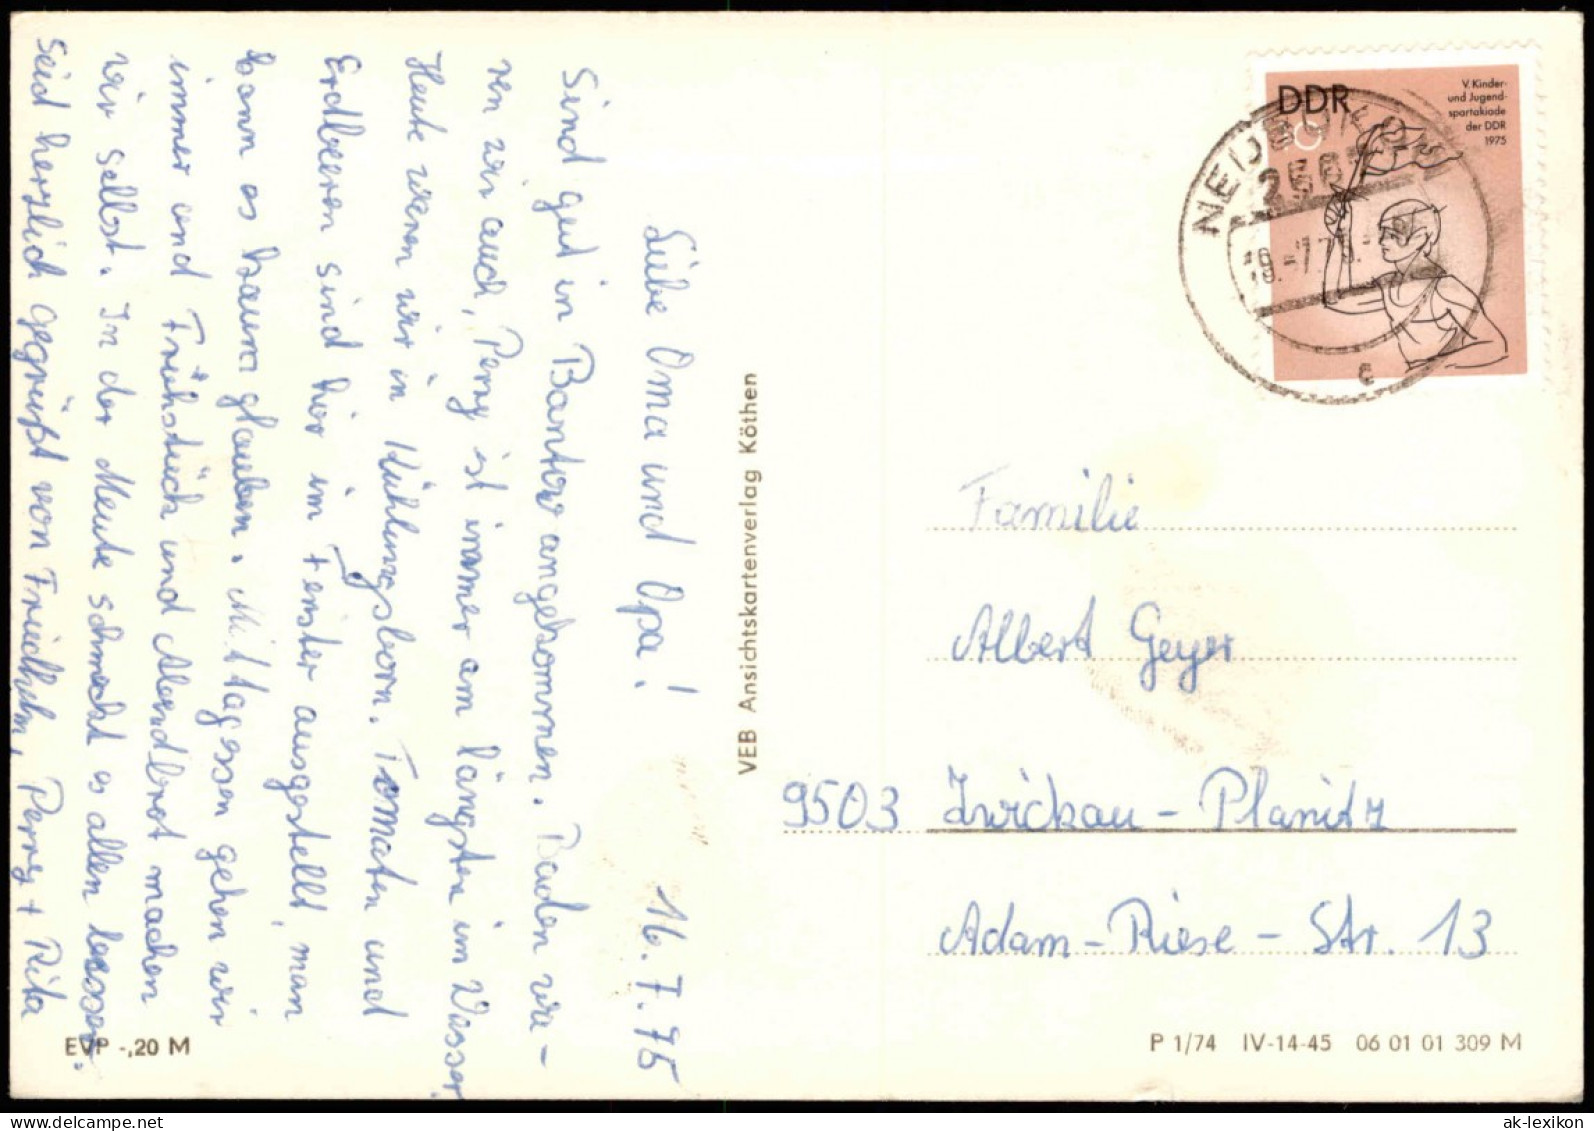 Liebe Oma und Opa! 16.7.75
Sind gut in Bantow angekommen. Baden wa-
ren wir auch, Perry ist immer am längsten im Wasser
Heute waren wir in Kühlungsborn. Tomaten und
Erdbeeren sind hier im Fenster ausgestellt, man
kann es kaum glauben. Mittagessen gehen wir
immer und Frühstück und Abendbrot machen
wir selbst. In der Meute schmeckt es allen besser.
Seid herzlich gegrüßt von Friedhelm, Perry + Rita
EVP -,20 M
VEB Ansichtskartenverlag Köthen
DDR
V. Kinder-
und Jugend-
spartakiade
der DDR
1975
c
Familie
Albert Geyer
9503 Zwickau-Planitz
Adam-Riese-Str. 13
P 1/74 IV-14-45 06 01 01 309 M
ak-lexikon